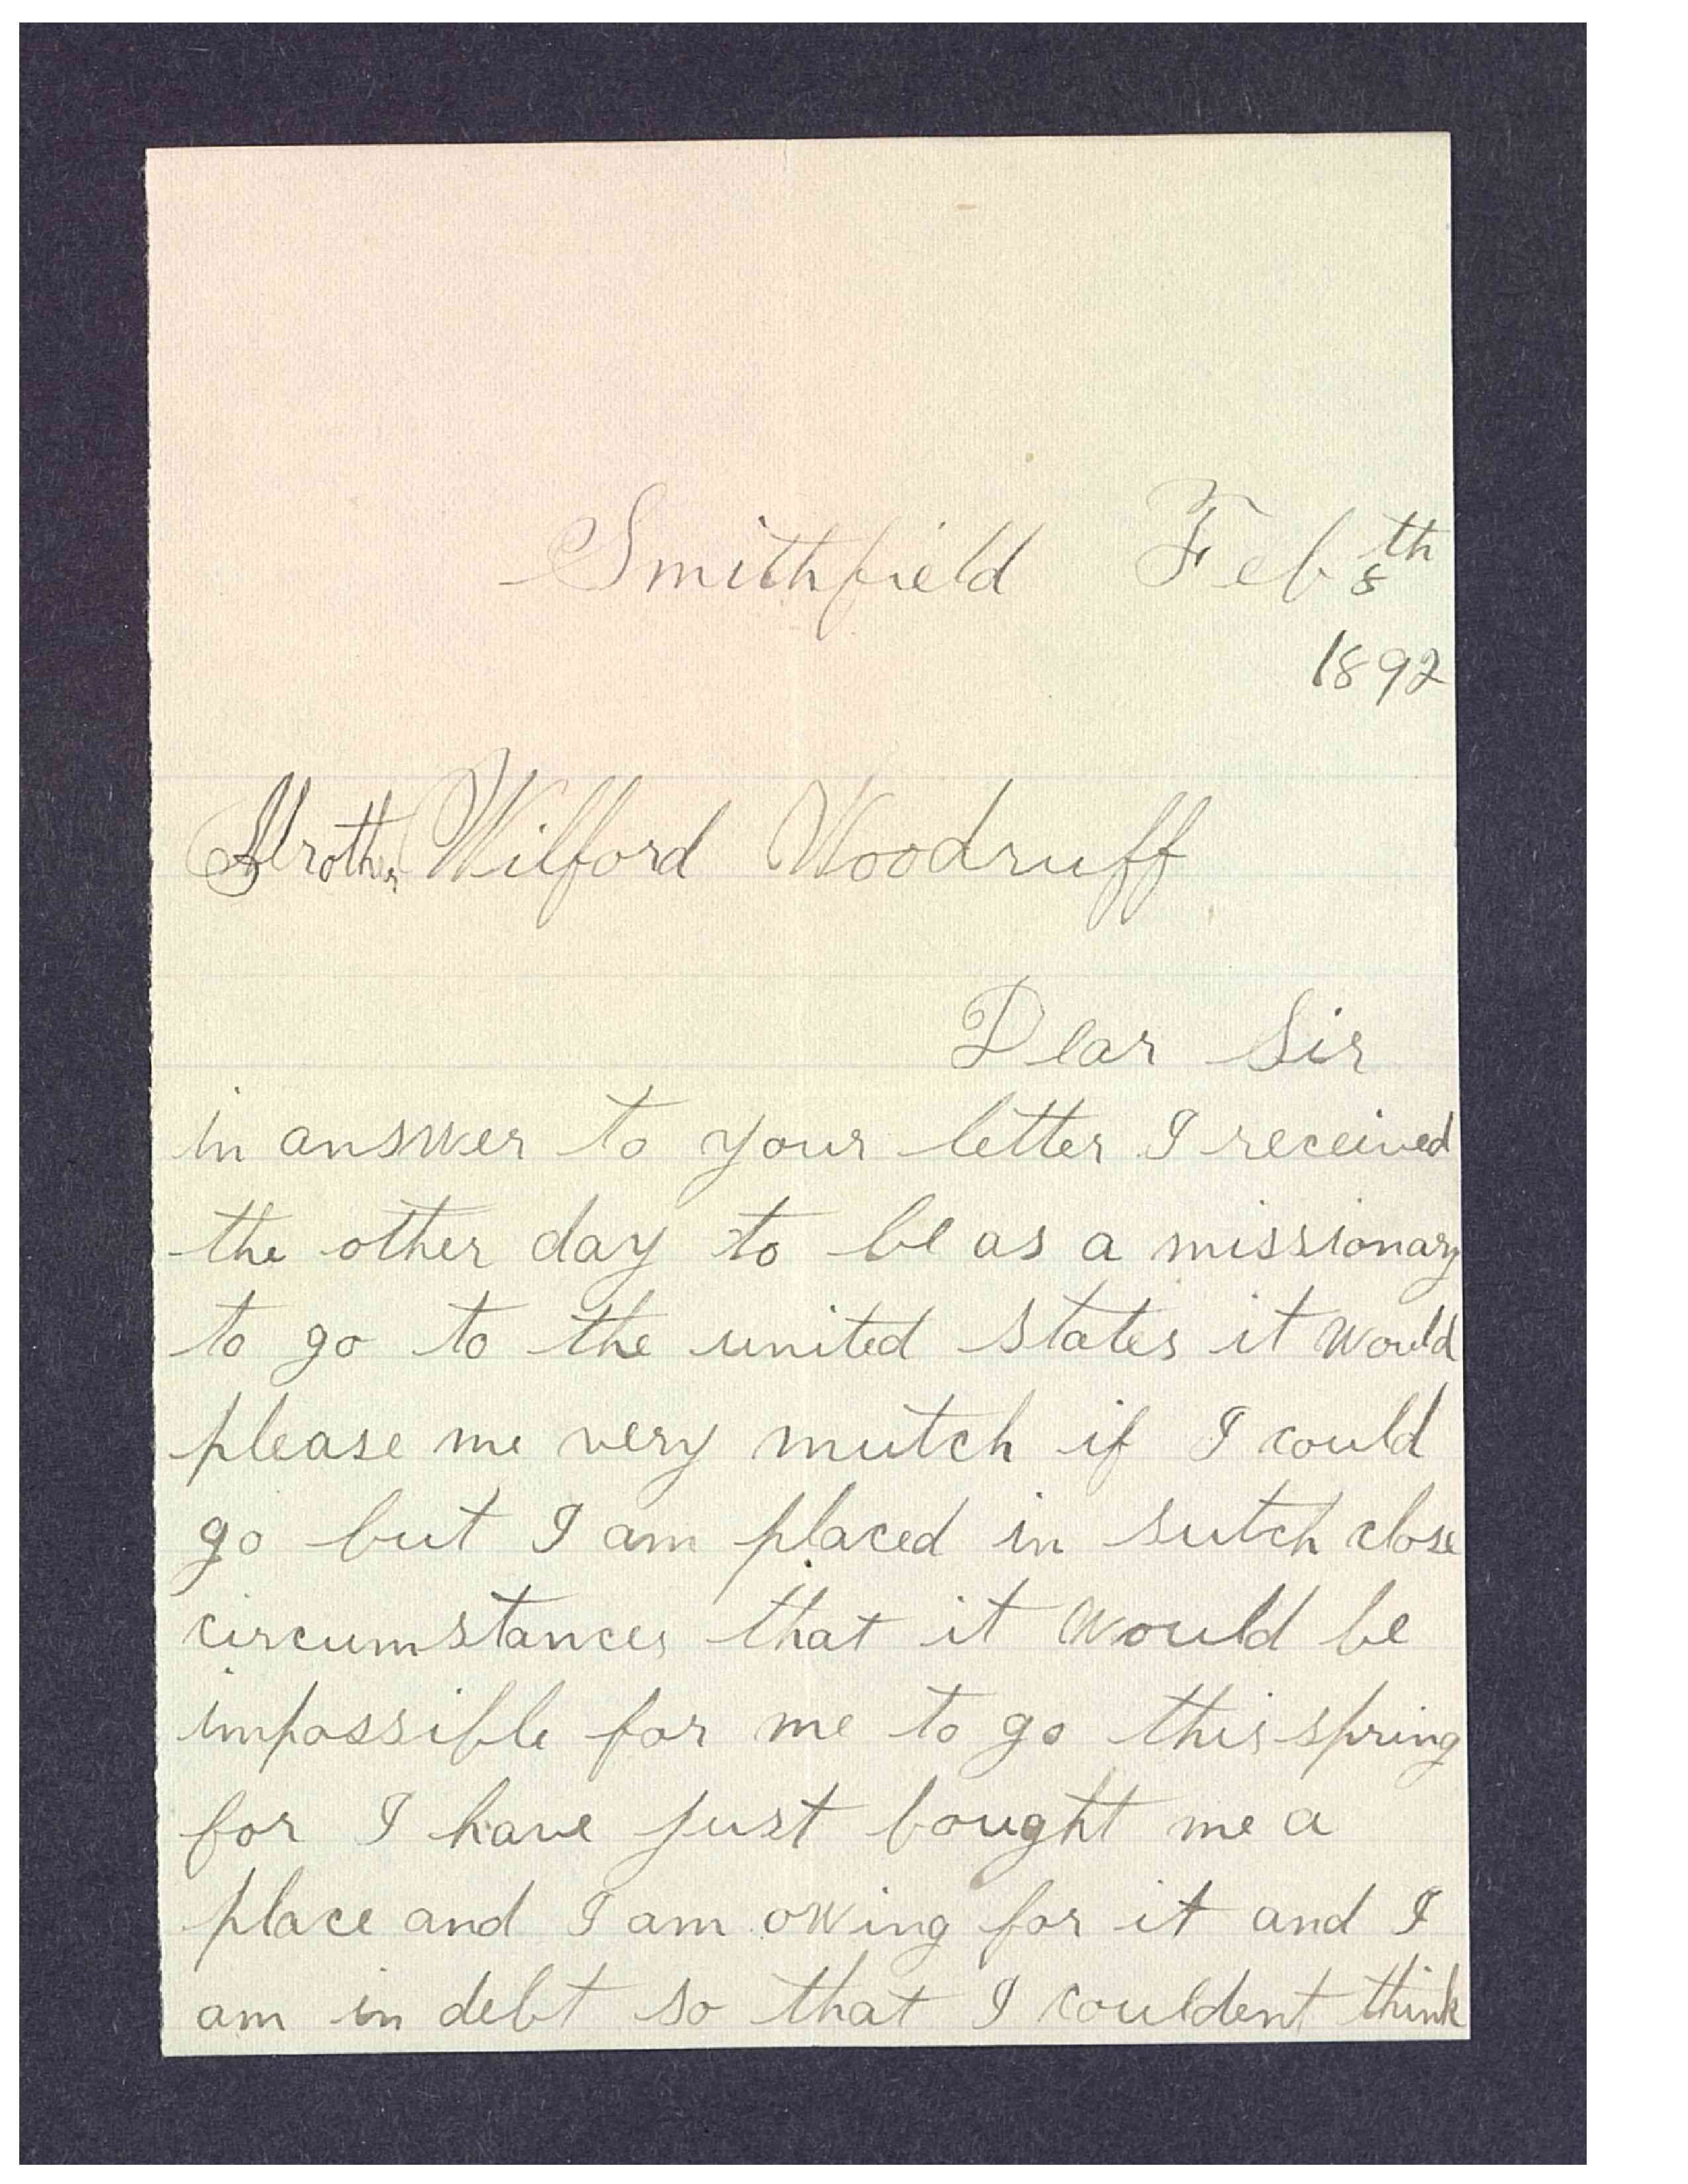 Smithfield Feb 8th
1892
Brother Wilford Woodruff
Dear Sir
in answer to your letter I received
the other day to be as a missionary
to go to the united states it would
please me very mutch if I could
go but I am placed in sutch close
circumstances that it would be
impossible for me to go this spring
for I have just bought me a
place and I am owing for it and I
am in debt so that I couldent think